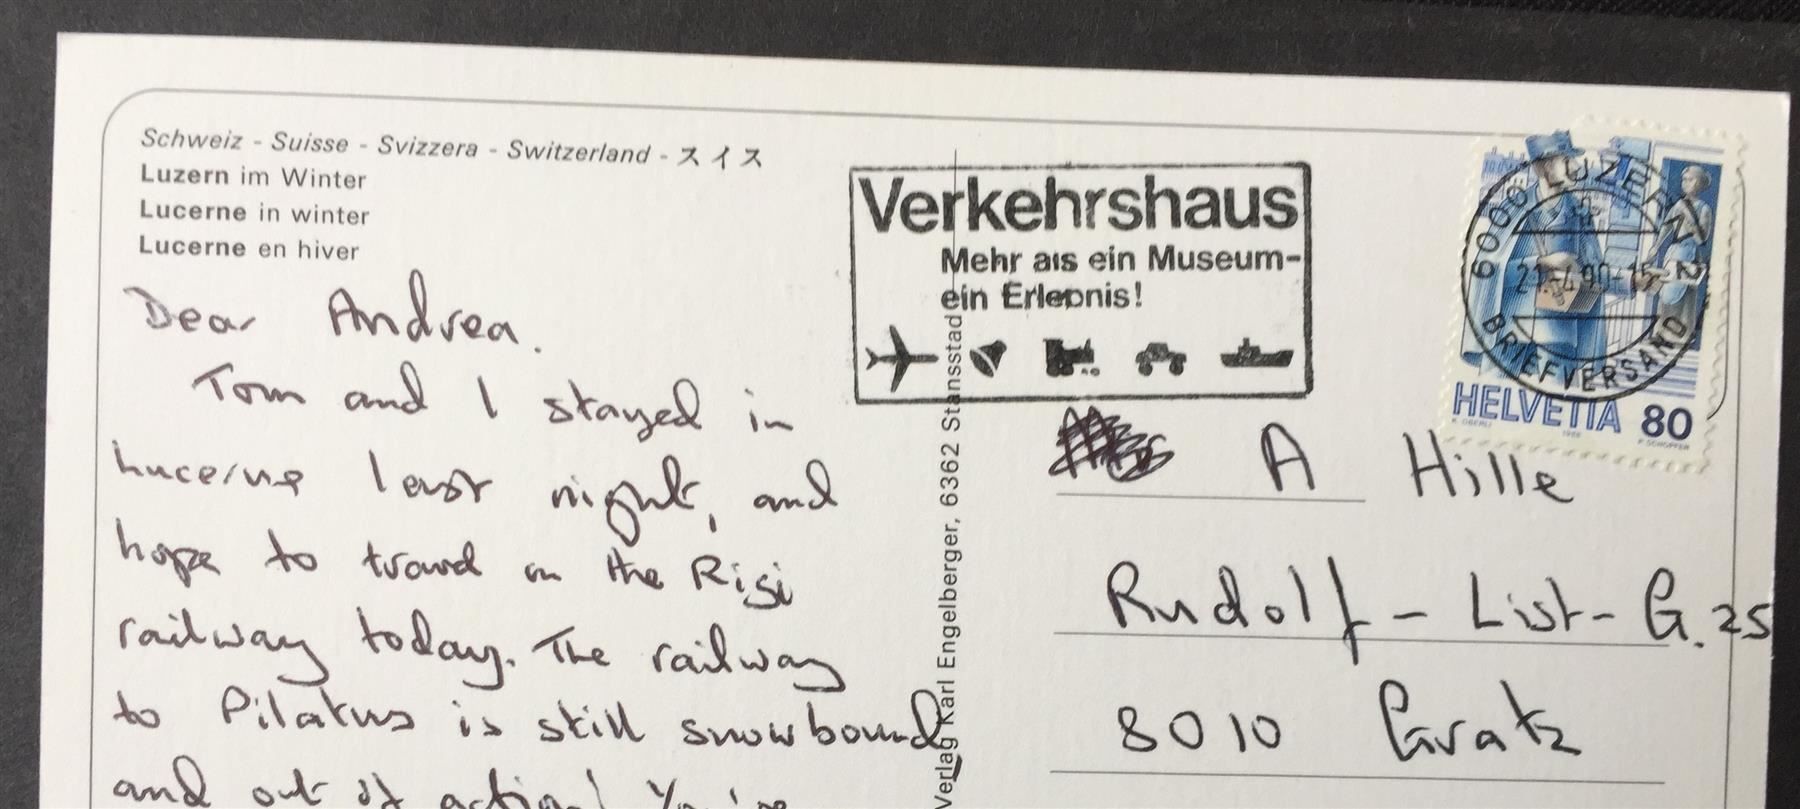 Schweiz - Suisse - Svizzera - Switzerland - スイス
Luzern im Winter
Lucerne in winter
Lucerne en hiver
Dear Andrea.
Tom and I stayed in
Lucerne last night, and
hope to travel on the Rigi
railway today. The railway
to Pilatus is still snowbound
and out of action!
Verlag Karl Engelberger, 6362 Stansstad
Verkehrshaus
Mehr als ein Museum-
ein Erlebnis!
6000 LUZERN 2
21.-4.90-15
BRIEFVERSAND
HELVETIA 80
K. OBERLI 1988 P. SCHOPFER
A Hille
Rudolf-List-G. 25
8010 Gratz